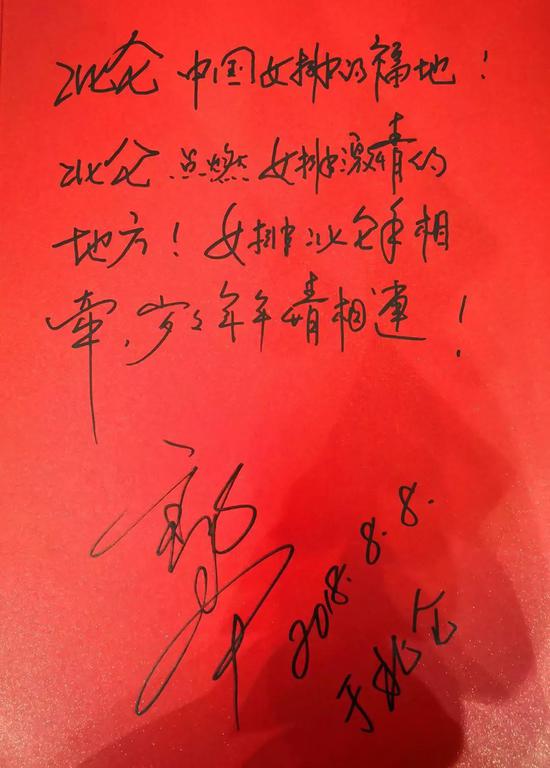 北仑中国女排的福地！
北仑点燃女排激情的
地方！女排北仑手相
牵，岁々年年情相连！
2018.8.8.
于北仑